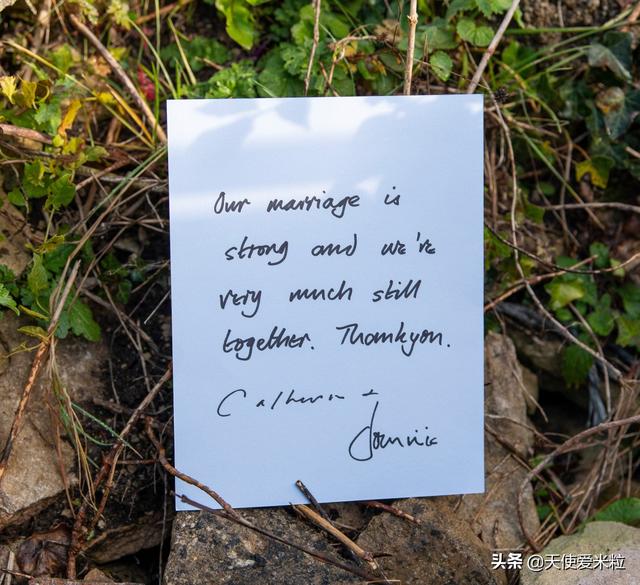 Our marriage is
strong and we're
very much still
together. Thankyou.
Catherine +
Dominic
头条 @天使爱米粒